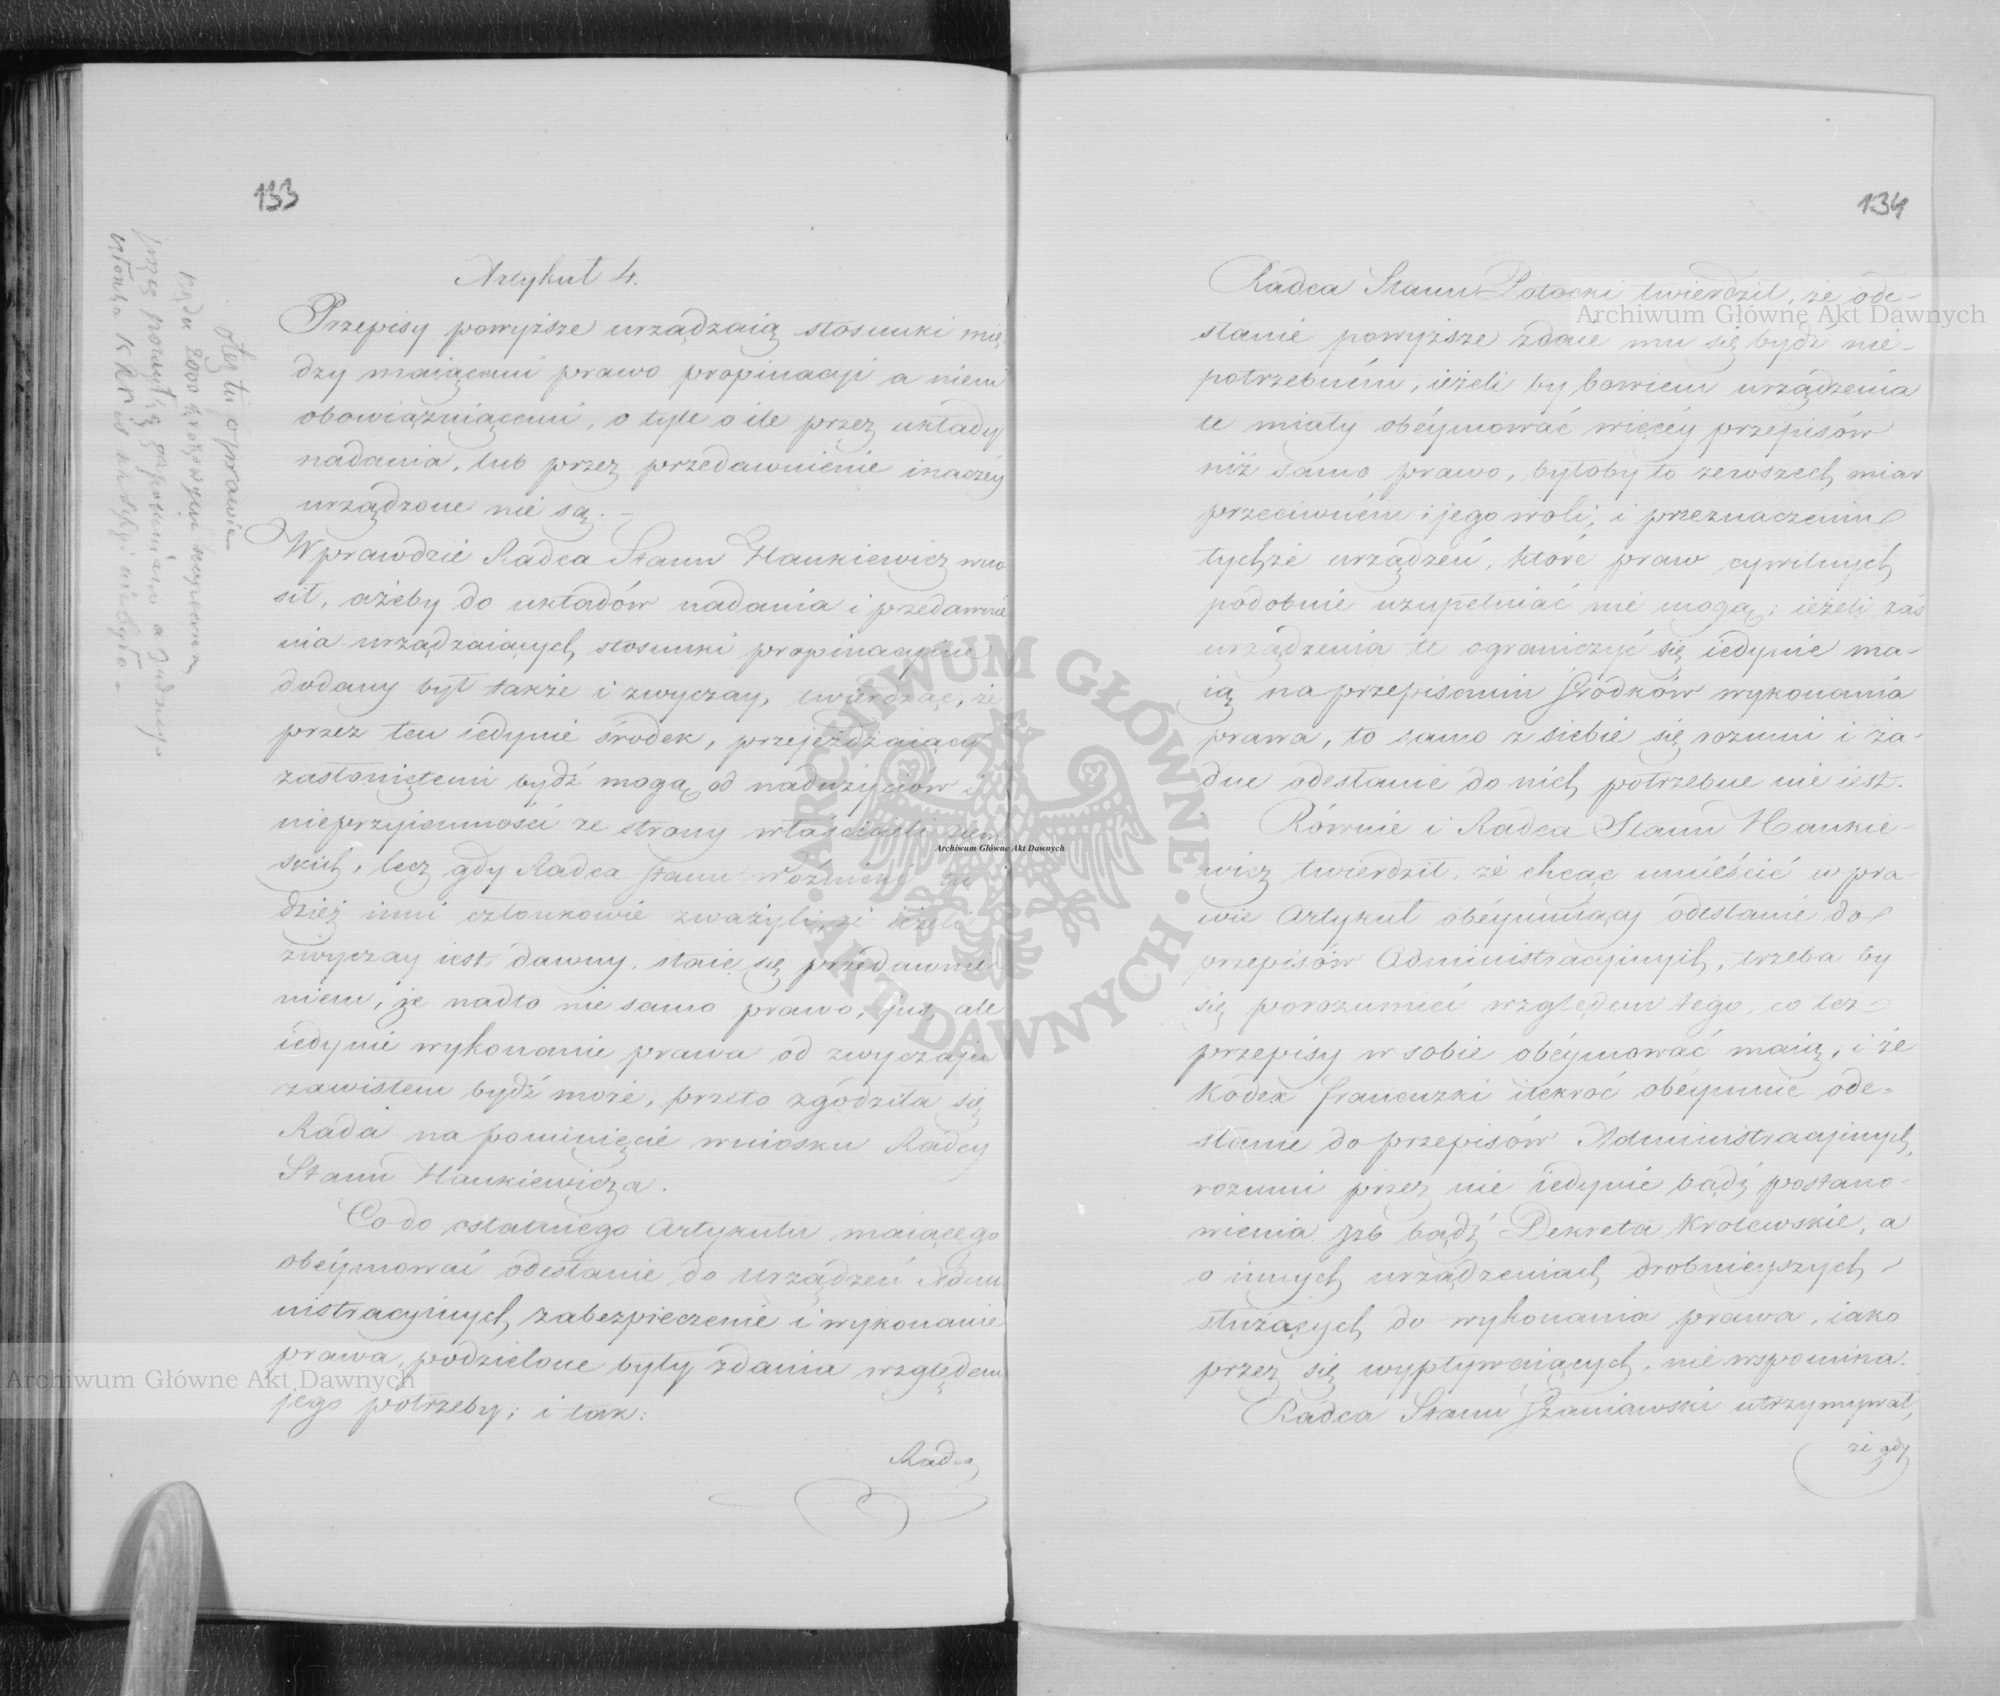 133
Artykuł 4.
Przepisy powyższe urządzaią stosunki mię
dzy maiącemi prawo propinacji a niem
obowiązuiącemi, o tyle o ile przez układy
nadania, lub przez przedawnienie inaczéy
urządzone nie są. –
Wprawdzie Radca Stanu Hankiewicz wno
sił, ażeby do układów nadania i przedawnie
nia urządzaiących stosunki propinacyine
dodany był także i zwyczay, twierdząc, że
przez ten iedynie środek, przejeżdżaiący
zasłonięтemi bydź mogą od nadużyciów i
nieprzyiemności ze strony właścicieli ziem
skich, lecz gdy Radca Stanu Woźnicki tu
dzież inni członkowie zważyli, że ieżeli
zwyczay iest dawny, staie się przedawnie
niem, że nadto nie samo prawo, jus, ale
iedynie wykonanie prawa od zwyczaju
zawisłem bydź może, przeto zgodziła się
Rada na pominięcie wniosku Radcy
Stanu Hankiewicza.
Co do ostatniego Artykułu maiącego
obéymować odesłanie do urządzeń Admi
nistracyinych, zabezpieczenie i wykonanie
prawa, podzielone były zdania względem
jego potrzeby; i tak:
Radca
też tu oprawia
134
Radca Stanu Potocki twierdził, że ode-
słanie powyższe zdaie mu się bydź nie-
potrzebném, ieżeli by bowiem urządzenia
te miały obéymować więcéy przepisów
niż samo prawo, byłoby to ze wszech miar
przeciwném i jego woli, i przeznaczeniu
tychże urządzeń, które praw cywilnych
podobnie uzupełniać nie mogą; ieżeli zaś
urządzenia te ograniczyć się iedynie ma-
ią na przepisaniu środków wykonania
prawa, to samo z siebie się rozumi i ża-
dne odesłanie do nich potrzebne nie iest.
Równie i Radca Stanu Hankie-
wicz twierdził, że chcąc umieścić w pra-
wie Artykuł obéymuiący odesłanie do
przepisów Administracyinych, trzeba by
się porozumieć względem tego, co też
przepisy w sobie obéymować maią, i że
Kodex francuzki ilekroć obéymuie ode-
słanie do przepisów Administracyinych,
rozumi przez nie iedynie bądź postano-
wienia bądź Dekreta Królewskie, a
o innych urządzeniach drobnieyszych
służących do wykonania prawa, iako
przez się wypływaiących, nie wspomina.
Radca Stanu Szaniawski utrzymywał,
że gdy